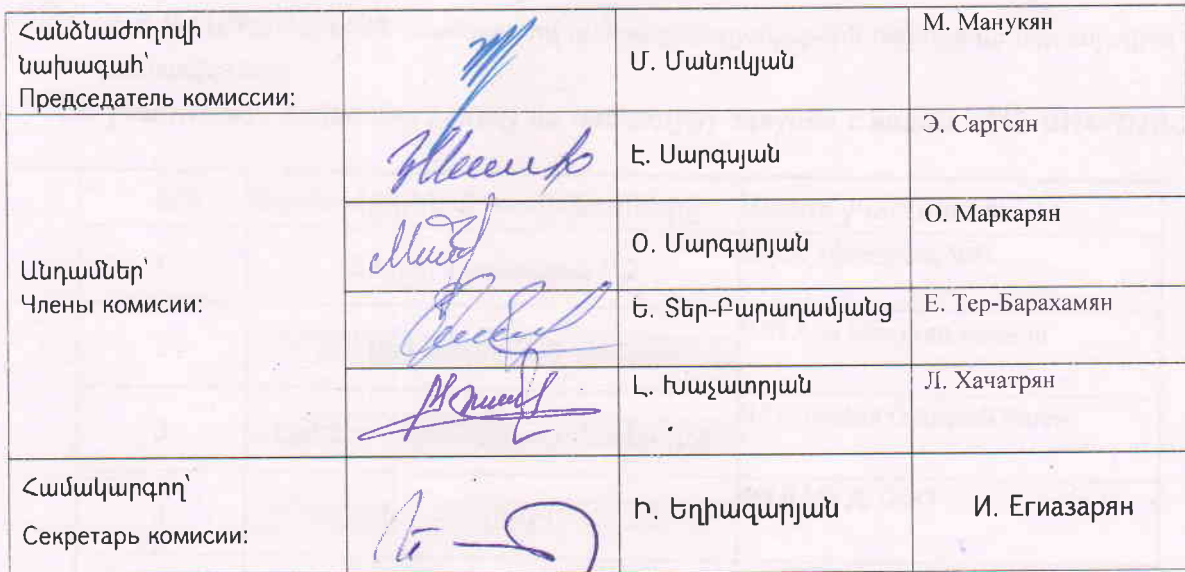 Հանձնաժողովի
նախագահ՝
Председатель комиссии:
Մ. Մանուկյան
М. Манукян
Է. Սարգսյան
Э. Саргсян
Անդամներ՝
Члены комисии:
Օ. Մարգարյան
О. Маркарян
Ե. Տեր-Բարաղամյանց
Е. Тер-Барахамян
Լ. Խաչատրյան
Л. Хачатрян
Համակարգող՝
Секретарь комисии:
Ի. Եղիազարյան
И. Егиазарян